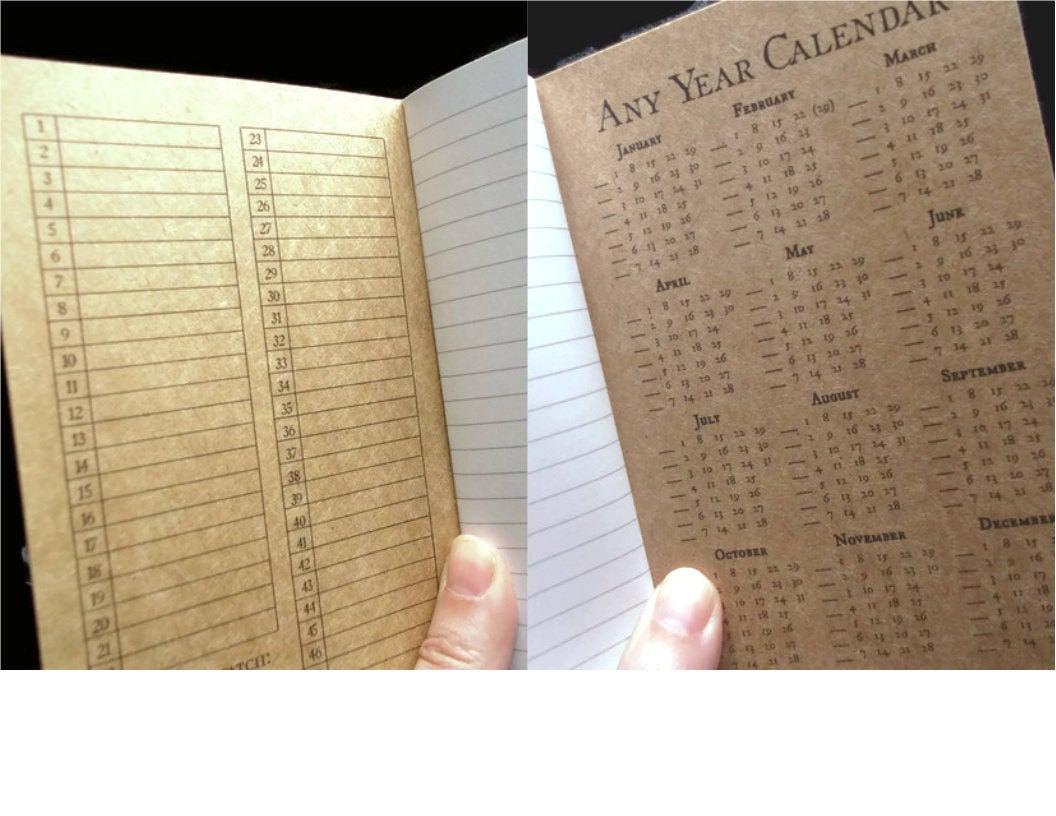 1
2
3
4
5
6
7
8
9
10
11
12
13
14
15
16
17
18
19
20
21
23
24
25
26
27
28
29
30
31
32
33
34
35
36
37
38
39
40
41
42
43
44
45
46
ANY YEAR CALENDAR
JANUARY
1 8 15 22 29
2 9 16 23 30
3 10 17 24 31
4 11 18 25
5 12 19 26
6 13 20 27
7 14 21 28
FEBRUARY
1 8 15 22 (29)
2 9 16 23
3 10 17 24
4 11 18 25
5 12 19 26
6 13 20 27
7 14 21 28
MARCH
1 8 15 22 29
2 9 16 23 30
3 10 17 24 31
4 11 18 25
5 12 19 26
6 13 20 27
7 14 21 28
APRIL
1 8 15 22 29
2 9 16 23 30
3 10 17 24
4 11 18 25
5 12 19 26
6 13 20 27
7 14 21 28
MAY
1 8 15 22 29
2 9 16 23 30
3 10 17 24 31
4 11 18 25
5 12 19 26
6 13 20 27
7 14 21 28
JUNE
1 8 15 22 29
2 9 16 23 30
3 10 17 24
4 11 18 25
5 12 19 26
6 13 20 27
7 14 21 28
JULY
1 8 15 22 29
2 9 16 23 30
3 10 17 24 31
4 11 18 25
5 12 19 26
6 13 20 27
7 14 21 28
AUGUST
1 8 15 22 29
2 9 16 23 30
3 10 17 24 31
4 11 18 25
5 12 19 26
6 13 20 27
7 14 21 28
SEPTEMBER
1 8 15 22
2 9 16 23
3 10 17 24
4 11 18 25
5 12 19 26
6 13 20 27
7 14 21 28
OCTOBER
1 8 15 22 29
9 16 23 30
10 17 24 31
11 18 25
5 12 19 26
6 13 20 27
7 14 21 28
NOVEMBER
1 8 15 22 29
2 9 16 23 30
3 10 17 24
4 11 18 25
5 12 19 26
6 13 20 27
7 14 21 28
DECEMBER
1 8 15
2 9 16
3 10 17
4 11 18
5 12 19
6 13 20
7 14 21